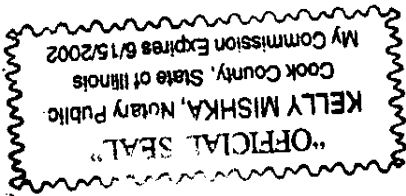 "OFFICIAL SEAL"
KELLY MISHKA, Notary Public
Cook County, State of Illinois
My Commission Expires 6/15/2002